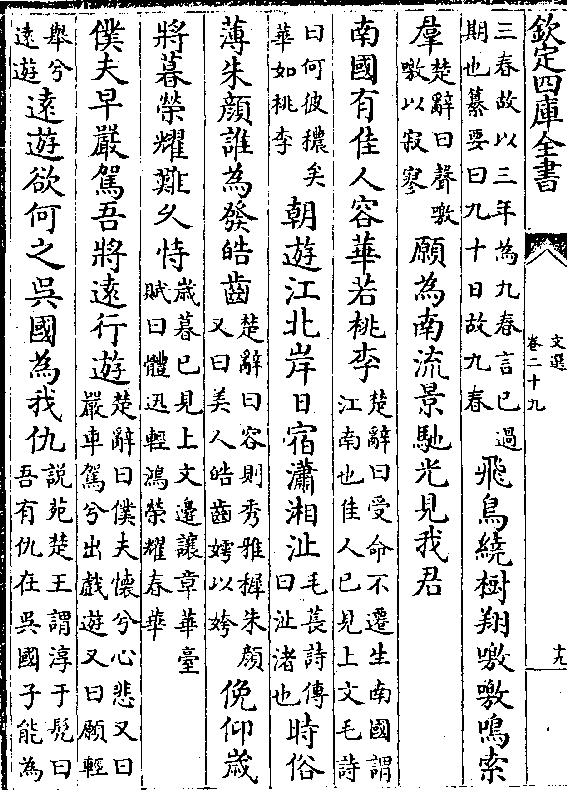 欽定四庫全書
文選
卷二十九
十九
三春故以三年為九春言已過
期也纂要曰九十日故九春
飛鳥繞樹翔噭噭鳴索
羣
楚辭曰聲噭
噭以寂寥
願為南流景馳光見我君
南國有佳人容華若桃李
楚辭曰受命不遷生南國謂
江南也佳人已見上文毛詩
曰何彼穠矣
華如桃李
朝遊江北岸日宿瀟湘沚
毛萇詩傳
曰沚渚也
時俗
薄朱顏誰為發皓齒
楚辭曰容則秀雅穉朱顏
又曰美人皓齒嫮以姱
俛仰歲
將暮榮耀難久恃
歲暮已見上文邊讓章華臺
賦曰體迅輕鴻榮耀春華
僕夫早嚴駕吾將遠行遊
楚辭曰僕夫懷兮心悲又曰
嚴車駕兮出戲遊又曰願輕
舉兮
遠遊
遠遊欲何之吳國為我仇
說苑楚王謂淳于髡曰
吾有仇在吳國子能為